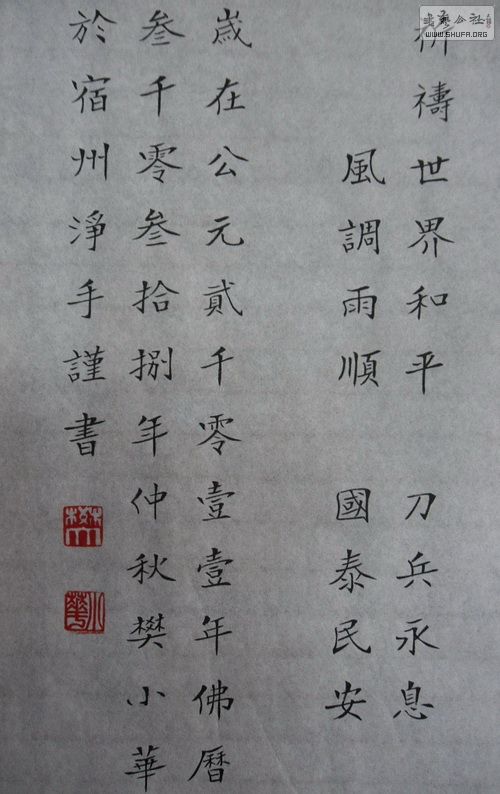 祈禱世界和平 刀兵永息
風調雨順 國泰民安
嵗在公元貳千零壹壹年佛曆
叁千零叁拾捌年仲秋樊小華
於宿州淨手謹書
樊
小華
書藝公社
WWW.SHUFA.ORG